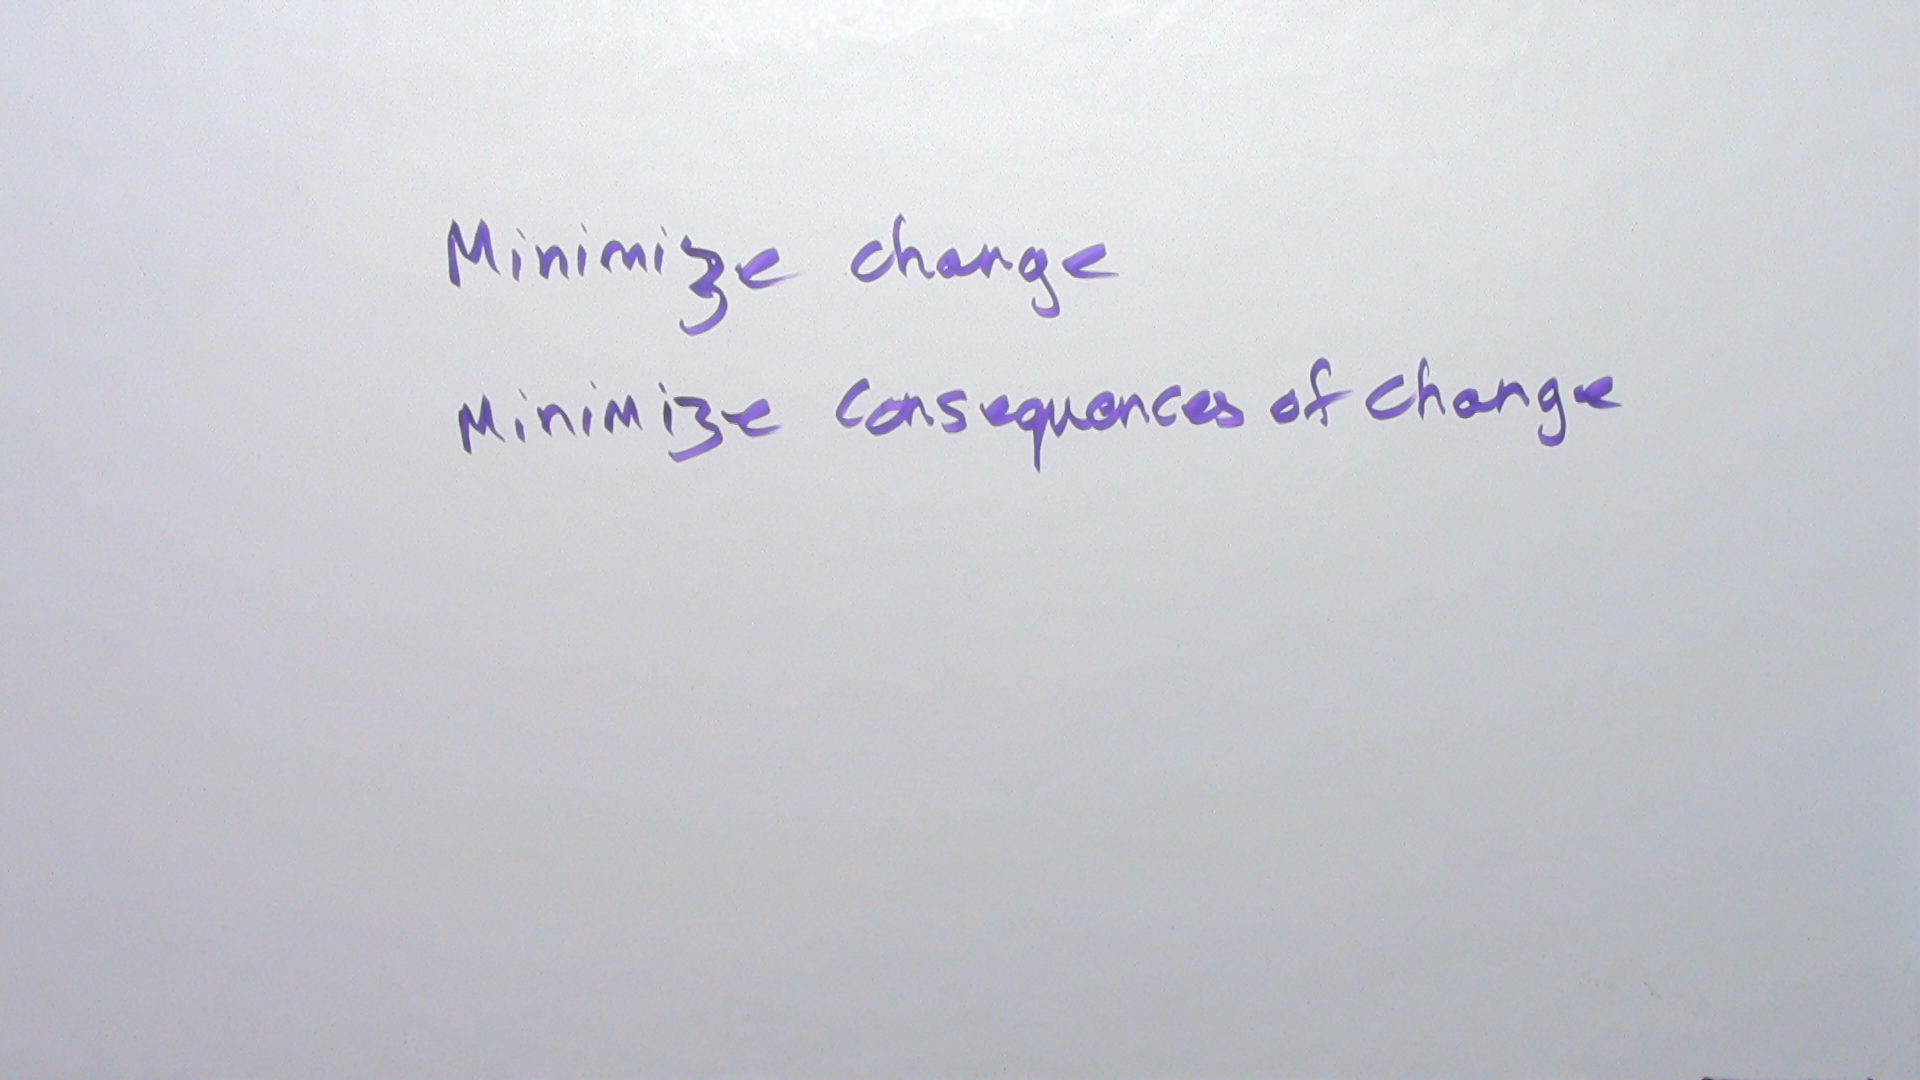 Minimize change
Minimize consequences of change